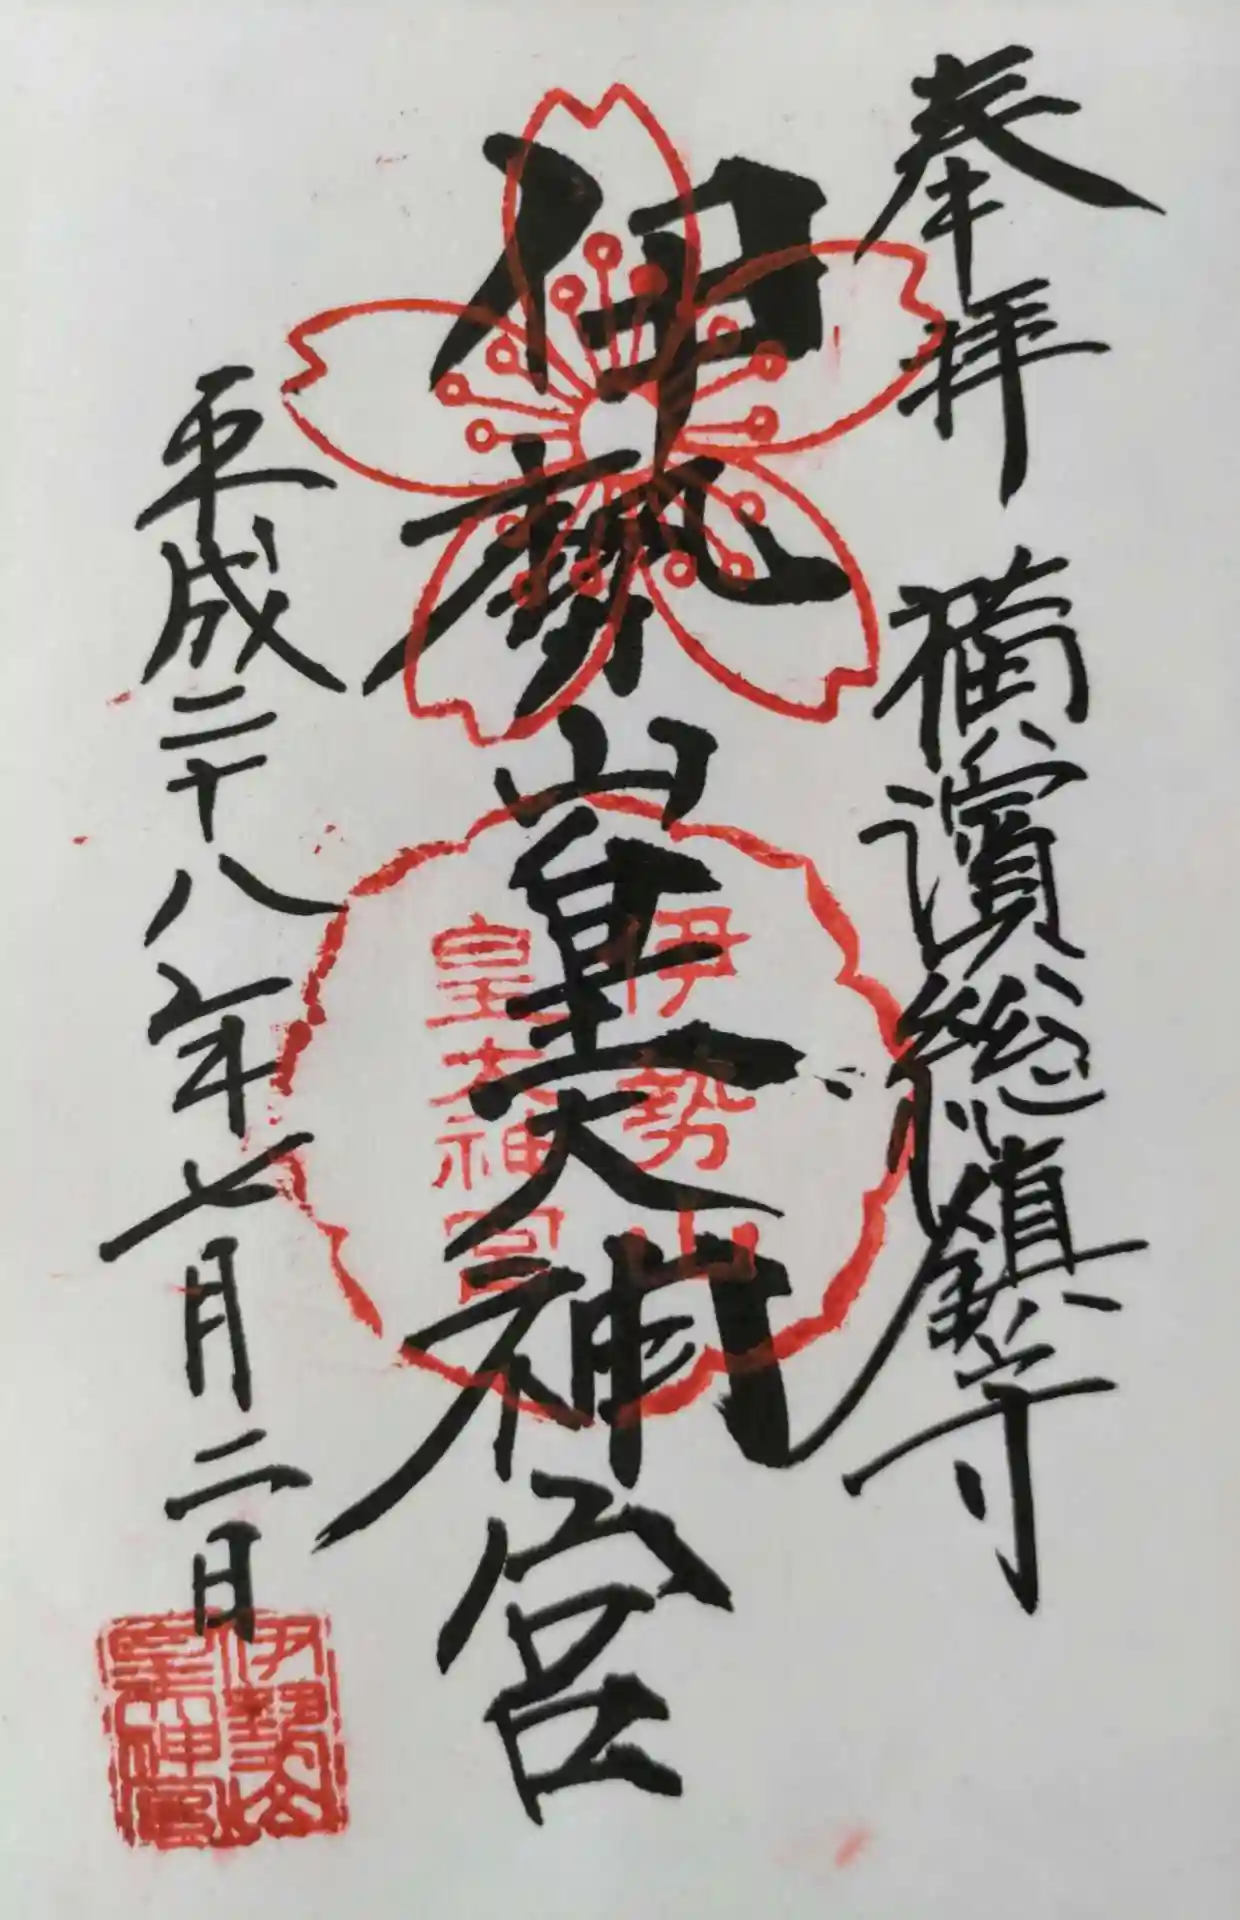 奉拝 横濱総鎮守
伊勢山皇大神宮
平成二十八年七月二日
伊勢山
皇大神宮
伊勢山
皇大神宮